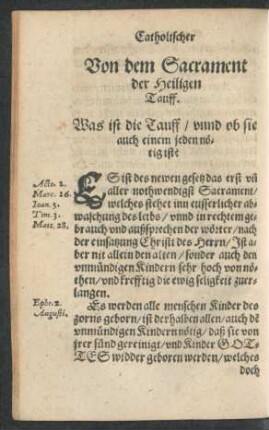 Catholischer
Von dem Sacrament
der Heiligen
Tauff.
Was ist die Tauff / vnnd ob sie
auch einem jeden nö-
tig ist?
Acto. 2.
Marc. 16.
Ioan. 3.
Tim. 3.
Matt. 28.
ES ist des newen gesetz das erst vñ
aller nothwendigst Sacrament /
welches stehet inn eusserlicher ab-
waschung des leibs / vnnd in rechtem ge-
brauch vnd aussprechen der wörter / nach
der einsatzung Christi des Herrn / Ist a-
ber nit allein den alten / sonder auch den
vnmündigen Kindern sehr hoch von nö-
then / vnd krefftig die ewig seligkeit zuer-
langen.
Ephe. 2.
Augusti.
Es werden alle menschen Kinder des
zorns geborn / ist derhalben allen / auch dē
vnmündigen Kindern nötig / daß sie von
jrer sünd gereinigt / vnd Kinder GOT-
TES widder geboren werden / welches
doch